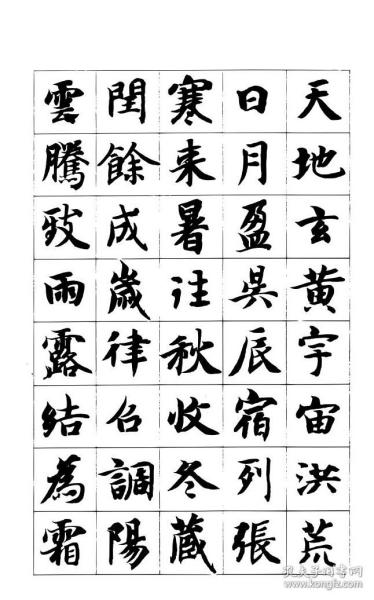 天地玄黄宇宙洪荒
日月盈昃辰宿列張
寒来暑往秋收冬藏
閏餘成歲律召調陽
雲騰致雨露結為霜
孔夫子旧书网